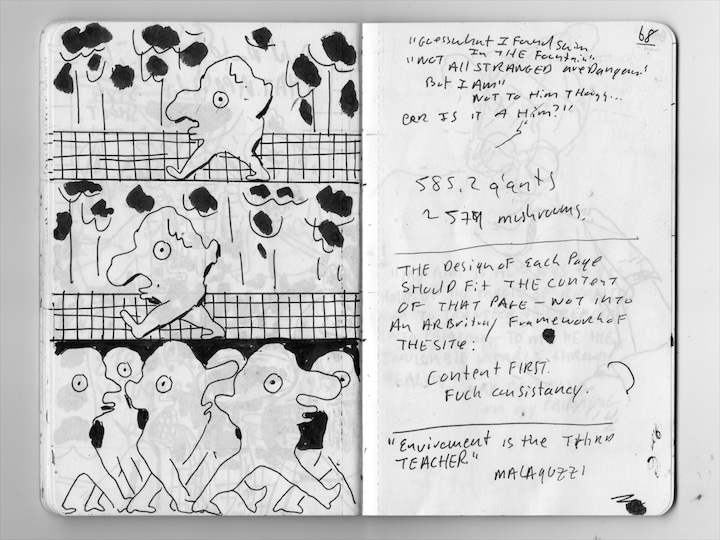 68
"Guesswhat I Found Swim
In THE Fountain"
"NOT All STRANGED are Dangerous!
But I AM"
NOT TO Him Though...
ERR IS IT A Him?"
585.2 giants
2 579 mushrooms.
THE Design of Each Page
SHOULD Fit THE CONTENT
OF THAT PAGE — NOT INTO
An ARBritary Framework of
THE SITE.
Content FIRST.
Fuck consistancy.
"Enviroment is the THIRD
TEACHER"
MALAGUZZI